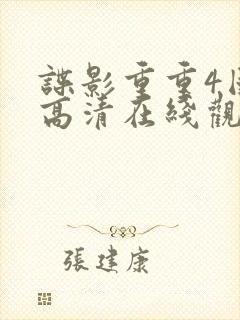 諜影重重4
高清在綫觀
張建康